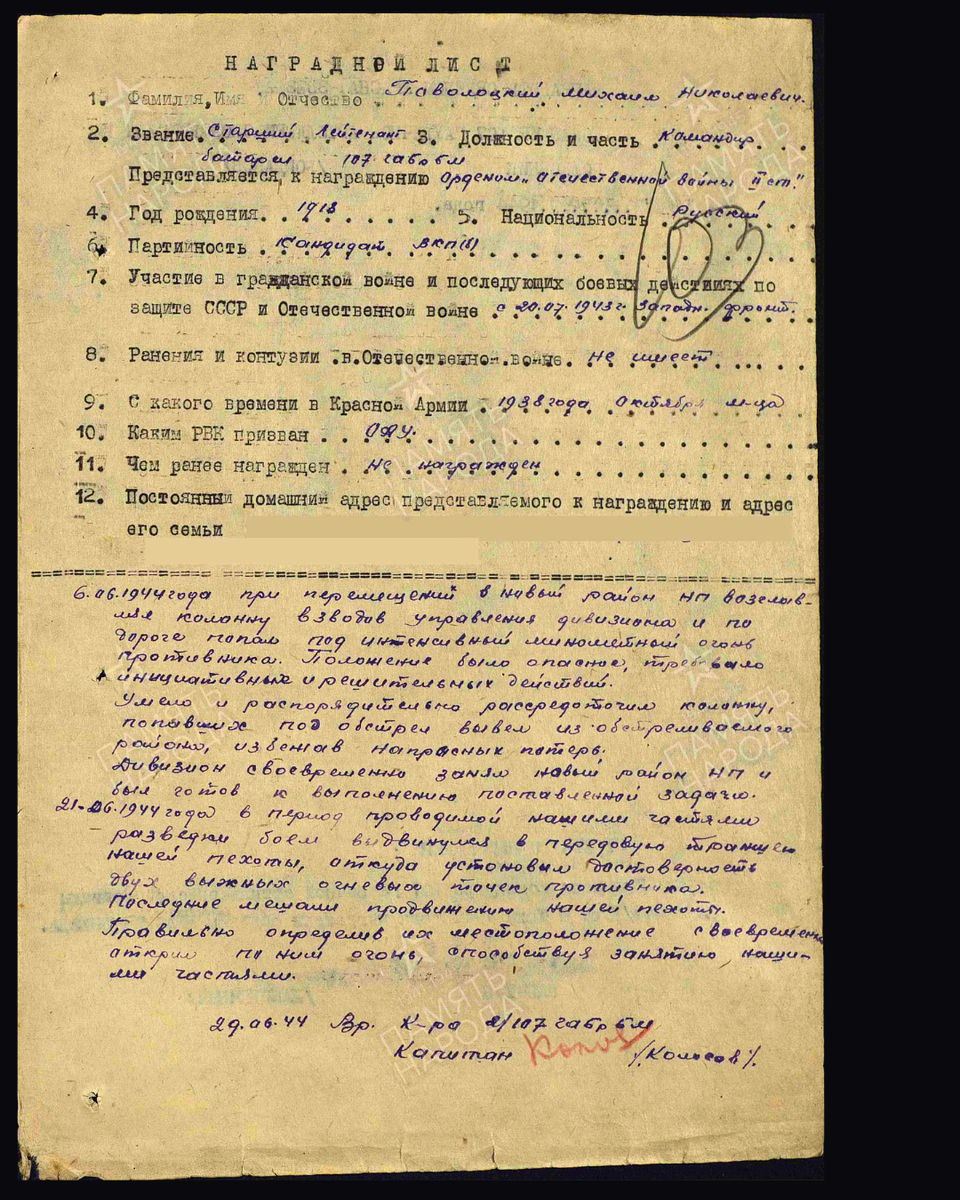 НАГРАДНОЙ ЛИСТ
1. Фамилия, Имя и Отчество Паволоцкий Михаил Николаевич.
2. Звание. Старший Лейтенант 3. Должность и часть Командир
батареи 107 габр бм
Представляется к награждению Орденом „Отечественной войны II ст."
4. Год рождения. 1918 5. Национальность Русский
6. Партийность Кандидат ВКП(б)
7. Участие в гражданской войне и последующих боевых действиях по
защите СССР и Отечественной войне с 20.07.1943 г. Западн. фронт.
8. Ранения и контузии в Отечественной войне. Не имеет
9. С какого времени в Красной Армии 1938 года Октября м-ца
10. Каким РВК призван
11. Чем ранее награжден. Не награжден
12. Постоянный домашний адрес представляемого к награждению и адрес
его семьи
6.06.1944 года при перемещений в новый район НП возглав-
лял колонну взводов управления дивизиона и по
дороге попал под интенсивный минометный огонь
противника. Положение было опасное, требовало
инициативных и решительных действий.
Умело и распорядительно рассредоточил колонну,
попавших под обстрел вывел из обстреливаемого
района, избежав напрасных потерь.
Дивизион своевременно занял новый район НП и
был готов к выполнению поставленной задачи.
21-06.1944 года в период проводимой нашими частями
разведки боем выдвинулся в передовую траншею
нашей пехоты, откуда установил достоверность
двух важных огневых точек противника.
Последние мешали продвижению нашей пехоты.
Правильно определив их местоположение своевременно
открыл по ним огонь, способствуя занятию наши-
ми частями.
29.06.44 Вр. К-ра 2/107 габр бм
Капитан /Колосов/.
ПАМЯТЬ НАРОДА